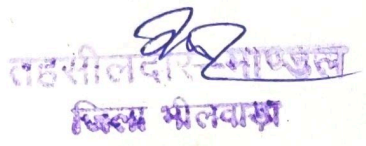 तहसीलदार माण्डल
जिला भीलवाड़ा